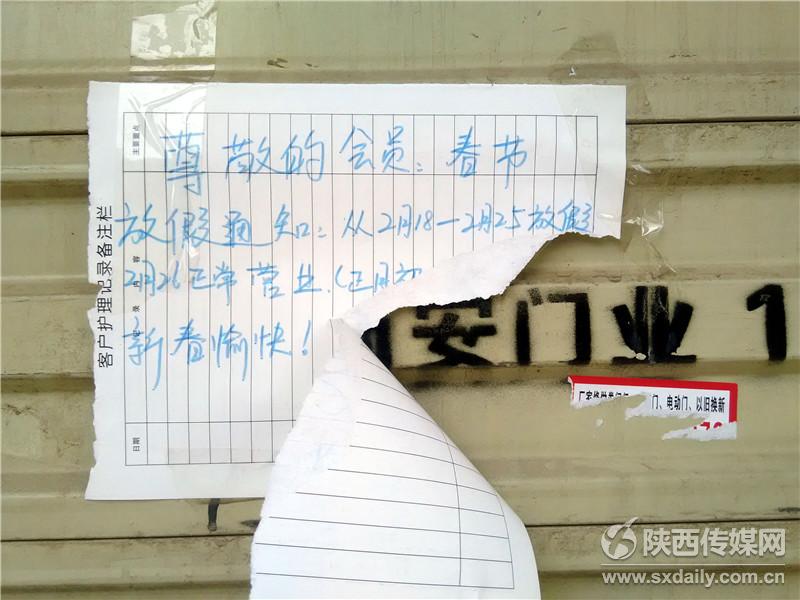 尊敬的会员：春节
放假通知：从2月18—2月25放假
2月26正常营业.(正月初
新春愉快！
客户护理记录备注栏
主要重点
记录内容
日期
安门业 1
门、电动门、以旧换新
陕西传媒网
www.sxdaily.com.cn